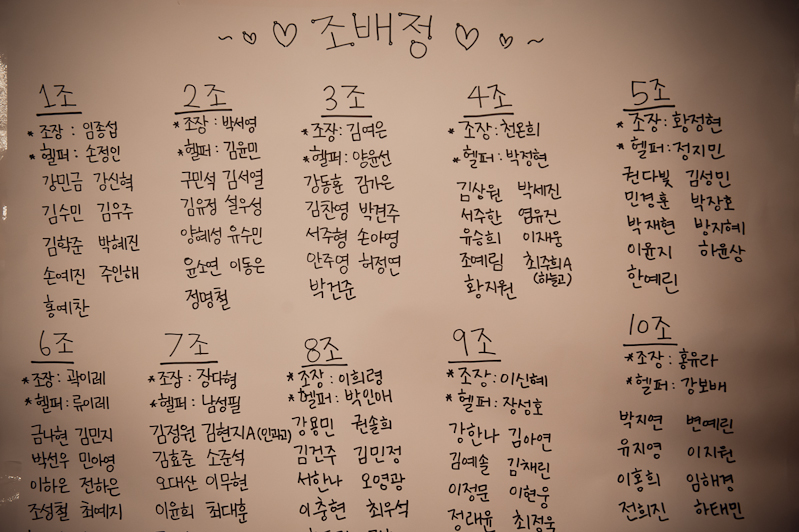 ~ ♡ ♡ 조배정 ♡ ♡ ~
1조
*조장 : 임종섭
*헬퍼 : 손정인
강민금 강신혁
김수민 김우주
김학준 박혜진
손예진 주인해
홍예찬
2조
*조장 : 박서영
*헬퍼 : 김윤민
구민석 김서열
김유정 설우성
양혜성 유수민
윤소연 이동은
정명철
3조
*조장 : 김여은
*헬퍼 : 양윤선
강동훈 김가은
김찬영 박견주
서주형 손아영
안주영 허정연
박건준
4조
*조장 : 천은희
*헬퍼 : 박정현
김상원 박세진
서주한 염유진
유승희 이재웅
조예림 최주희A
(하늘고)
황지원
5조
*조장 : 황정현
*헬퍼 : 정지민
권다빛 김성민
민경훈 박장호
박재현 방지혜
이윤지 하윤상
한예린
6조
*조장 : 곽이레
*헬퍼 : 류이레
금나현 김민지
박선우 민아영
이하은 전하은
조성철 최예지
7조
*조장 : 장다형
*헬퍼 : 남성필
김정원 김현지A(인과고)
김효준 소준석
오대산 이무현
이윤희 최대훈
8조
*조장 : 이희령
*헬퍼 : 박인애
강용민 권솔희
김건주 김민정
서한나 오영광
이축현 최우석
9조
*조장 : 이신혜
*헬퍼 : 장성호
강한나 김아연
김예솔 김채린
이정문 이현웅
정래윤 최정욱
10조
*조장 : 홍유라
*헬퍼 : 강보배
박지연 변예린
유지영 이지원
이홍희 임해경
전희진 하태민